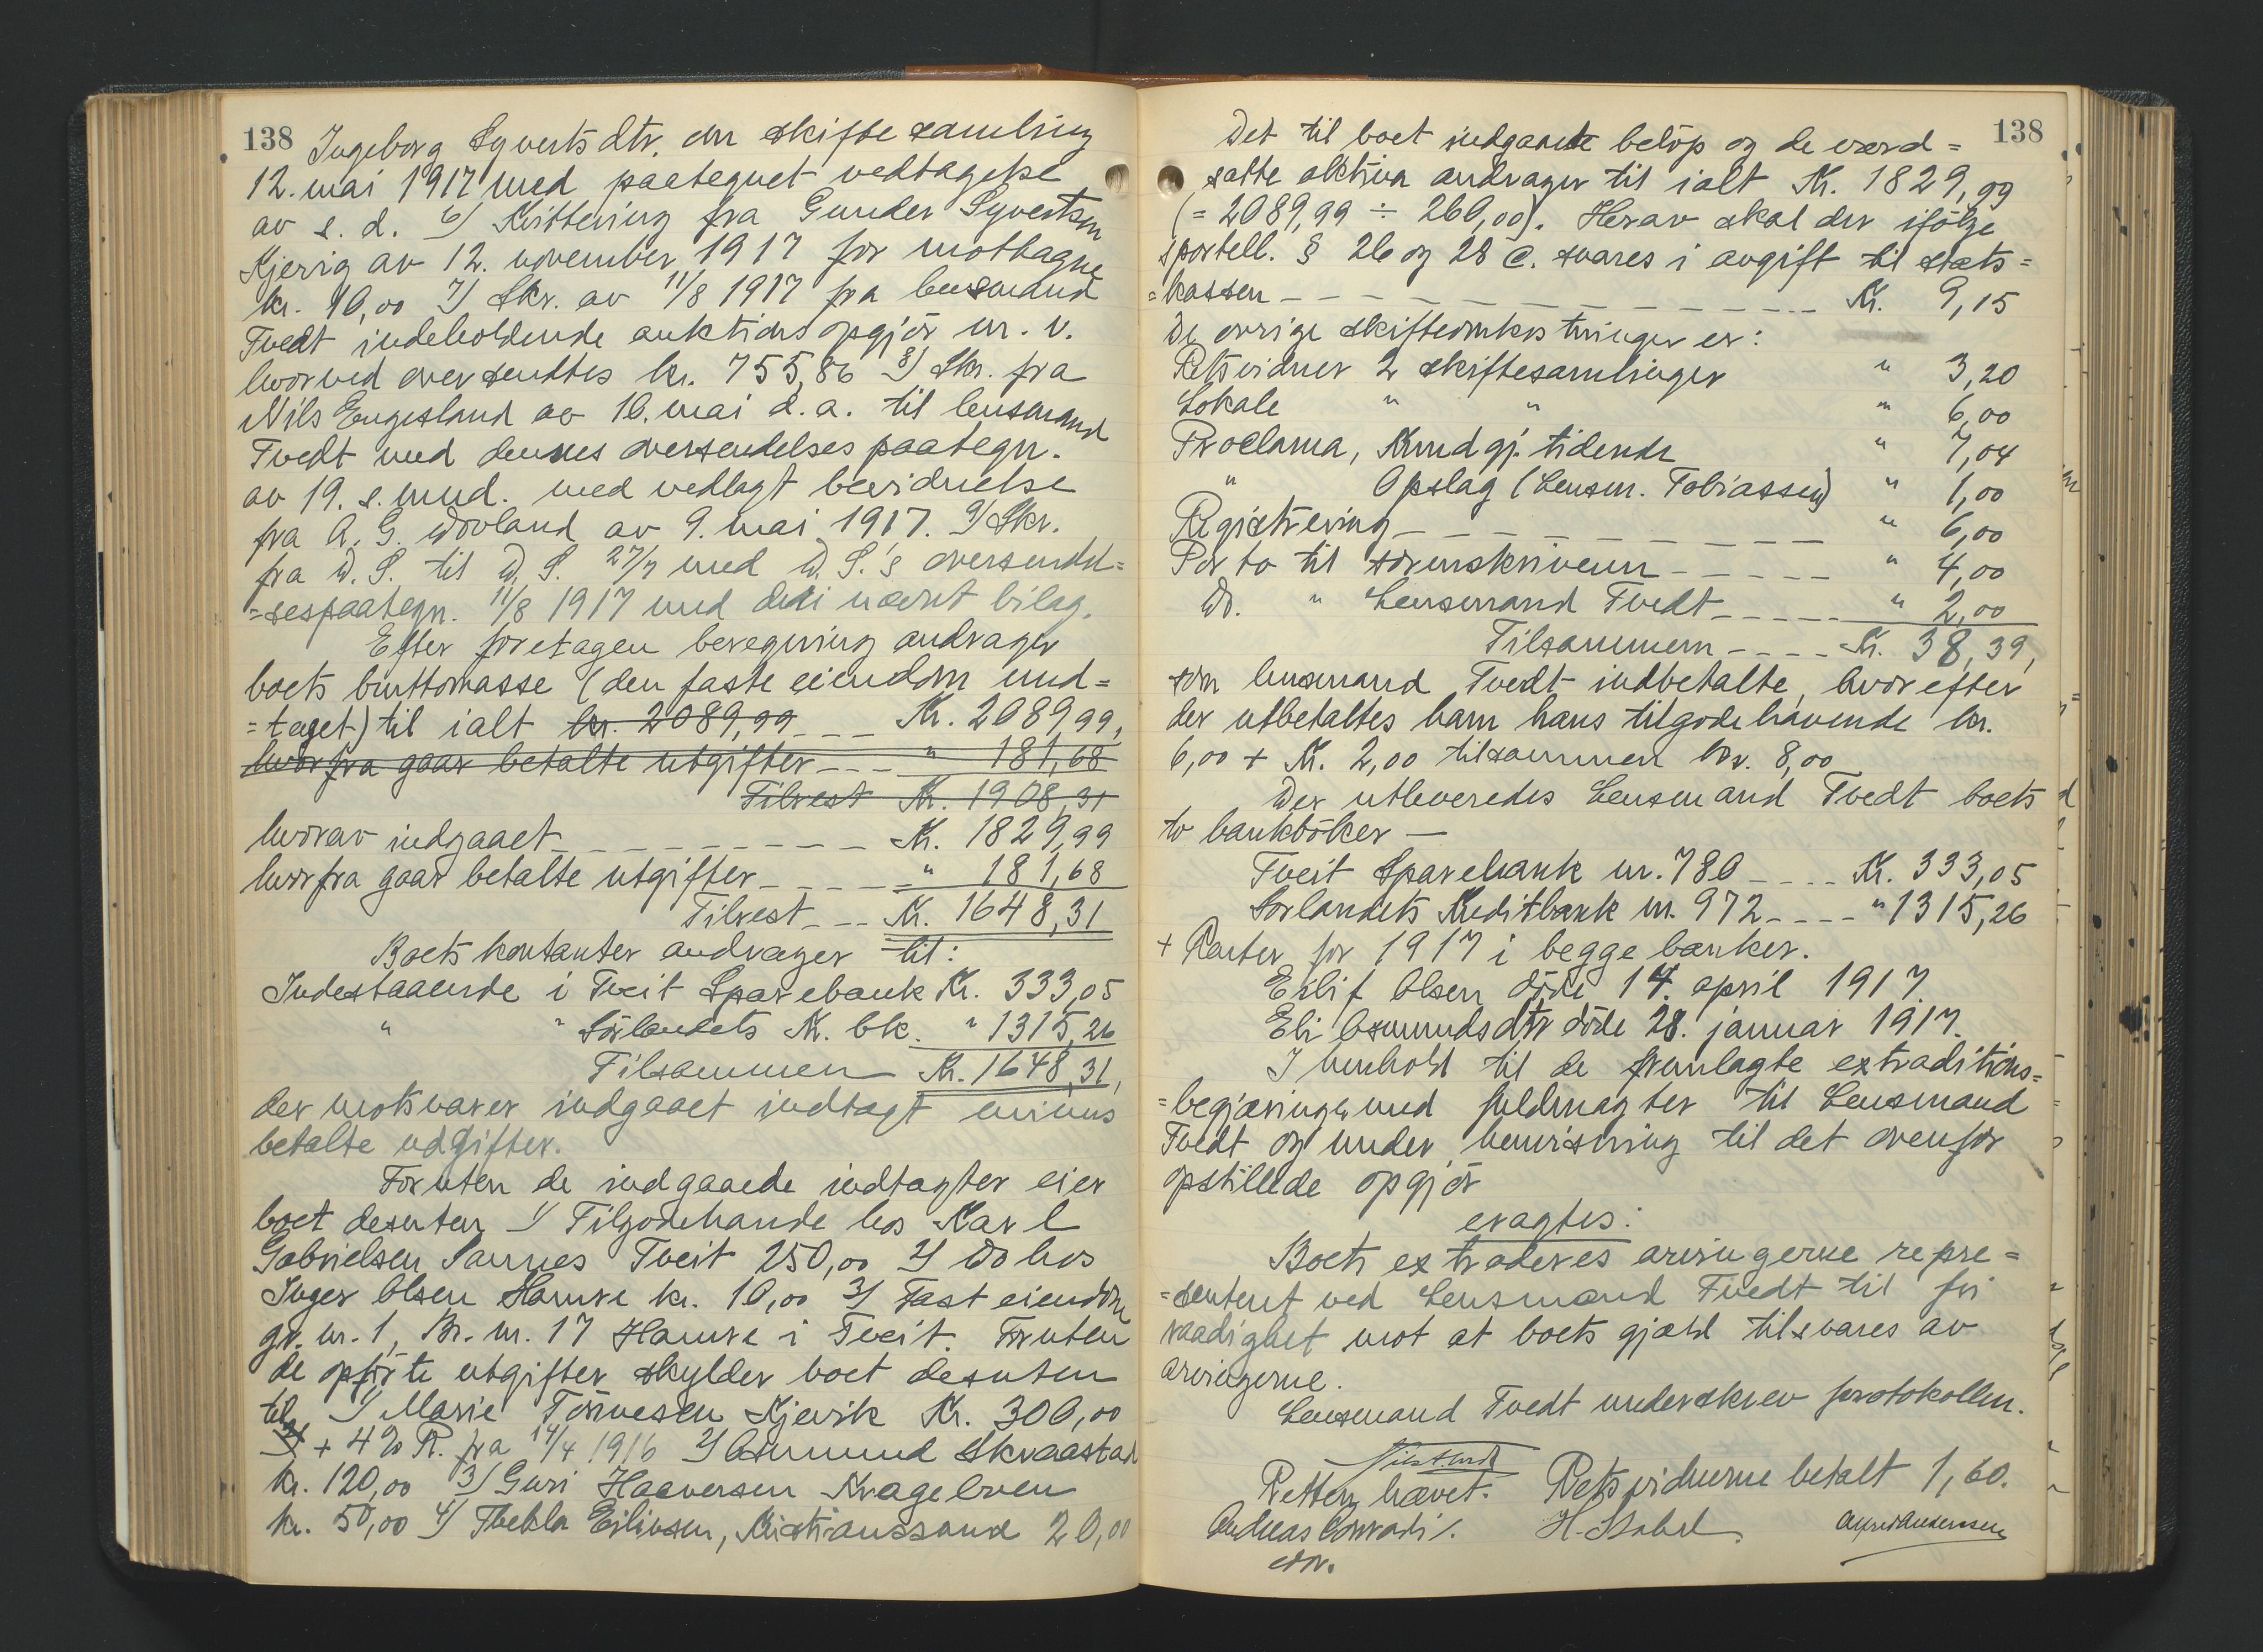 138
Ingeborg Syvertsdtr. om skiftesamling
12. mai 1917 med paategnet vedtagelse
av s. d. 6) Kvittering fra Gunder Syvertsen
Kjevig av 12. november 1917 for mottagne
kr. 10,00 7) Skr. av 11/8 1917 fra lensmand
Tvedt indeholdende auktionsopgjör m. v.
hvorved oversendtes kr. 755,86 8) Skr. fra
Nils Engesland av 10. mai d. a. til lensmand
Tvedt med dennes oversendelsespaategn.
av 19. s. mnd. med vedlagt bevidnelse
fra A. G. Dovland av 9. mai 1917. 9) Skr.
fra D. S. til D. S. 27/7 med D. S.'s oversendel=
=sespaategn. 11/8 1917 med deri nævnt bilag.
Efter foretagen beregning andrager
boets bruttomasse (den faste eiendom und=
=taget) til ialt kr. 2089,99 --- Kr. 2089,99,
hvorfra gaar betalte utgifter --- " 181,68
Tilrest Kr. 1908,31
hvorav indgaaet --------- Kr. 1829,99
hvorfra gaar betalte utgifter ----- " 181,68
Tilrest --- Kr. 1648,31
Boets kontanter andrager til:
Indestaaende i Tveit Sparebank Kr. 333,05
" " Sörlandets K. bk. " 1315,26
Tilsammen Kr. 1648,31,
der motsvarer indgaaet indtægt minus
betalte udgifter.
Foruten de indgaaede indtægter eier
boet desuten 1) Tilgodehavende hos Karl
Gabrielsen Tveit 250,00 2) Do hos
Inger Olsen Hamre kr. 10,00 3) Fast eiendom
gr. nr. 1, Br. nr. 17 Hamre i Tveit. Foruten
de opförte utgifter skylder boet desuten
til 1) Marie Tönnesen Kjevik Kr. 300,00
+ 4% R. fra 14/4 1916 2) Osmund Skraastad
kr. 120,00 3) Guri Haaversen Krageboen
kr. 50,00 4) Thekla Eilivsen, Kristianssand 20,00
138
Det til boet indgaaede belöp og de værd=
satte aktiva andrager til ialt Kr. 1829,99
(= 2089,99 ÷ 260,00). Herav skal der ifölge
sportell. § 26 og 28 c. svares i avgift til stats=
=kassen --------- Kr. 9,15
De övrige skifteomkostninger er:
Retsvidner 2 skiftesamlinger " 3,20
Lokale " " " 6,00
Proclama, Kundgj. tidende " 7,04
" Opslag (Lensm. Tobiassen) " 1,00
Registrering --------- " 6,00
Porto til sorenskriveren ----- " 4,00
Do. " Lensmand Tvedt ----- " 2,00
Tilsammen ---- Kr. 38,39,
som lensmand Tvedt indbetalte, hvorefter
der utbetaltes ham hans tilgodehavende kr.
6,00 + Kr. 2,00 tilsammen kr. 8,00
Der utleveredes Lensmand Tvedt boets
to bankböker —
Tveit Sparebank nr. 780 ---- Kr. 333,05
Sörlandets Kreditbank nr. 972 ---- " 1315,26
+ Renter for 1917 i begge banker.
Eilif Olsen döde 14. april 1917.
Eli Osmundsdtr döde 28. januar 1917.
I henhold til de fremlagte extraditions=
=begjæringer med fuldmagter til Lensmand
Tvedt og under henvisning til det ovenfor
opstillede opgjör
eragtes:
Boet extraderes arvingerne repre=
=senteret ved Lensmand Tvedt til fri
raadighet mot at boets gjæld tilsvares av
arvingerne.
Lensmand Tvedt underskrev protokollen.
Nils Tvedt
Retten hævet. Retsvidnerne betalt 1,60.
Andreas Conradi. H. Stabel. Alfred Anderssen